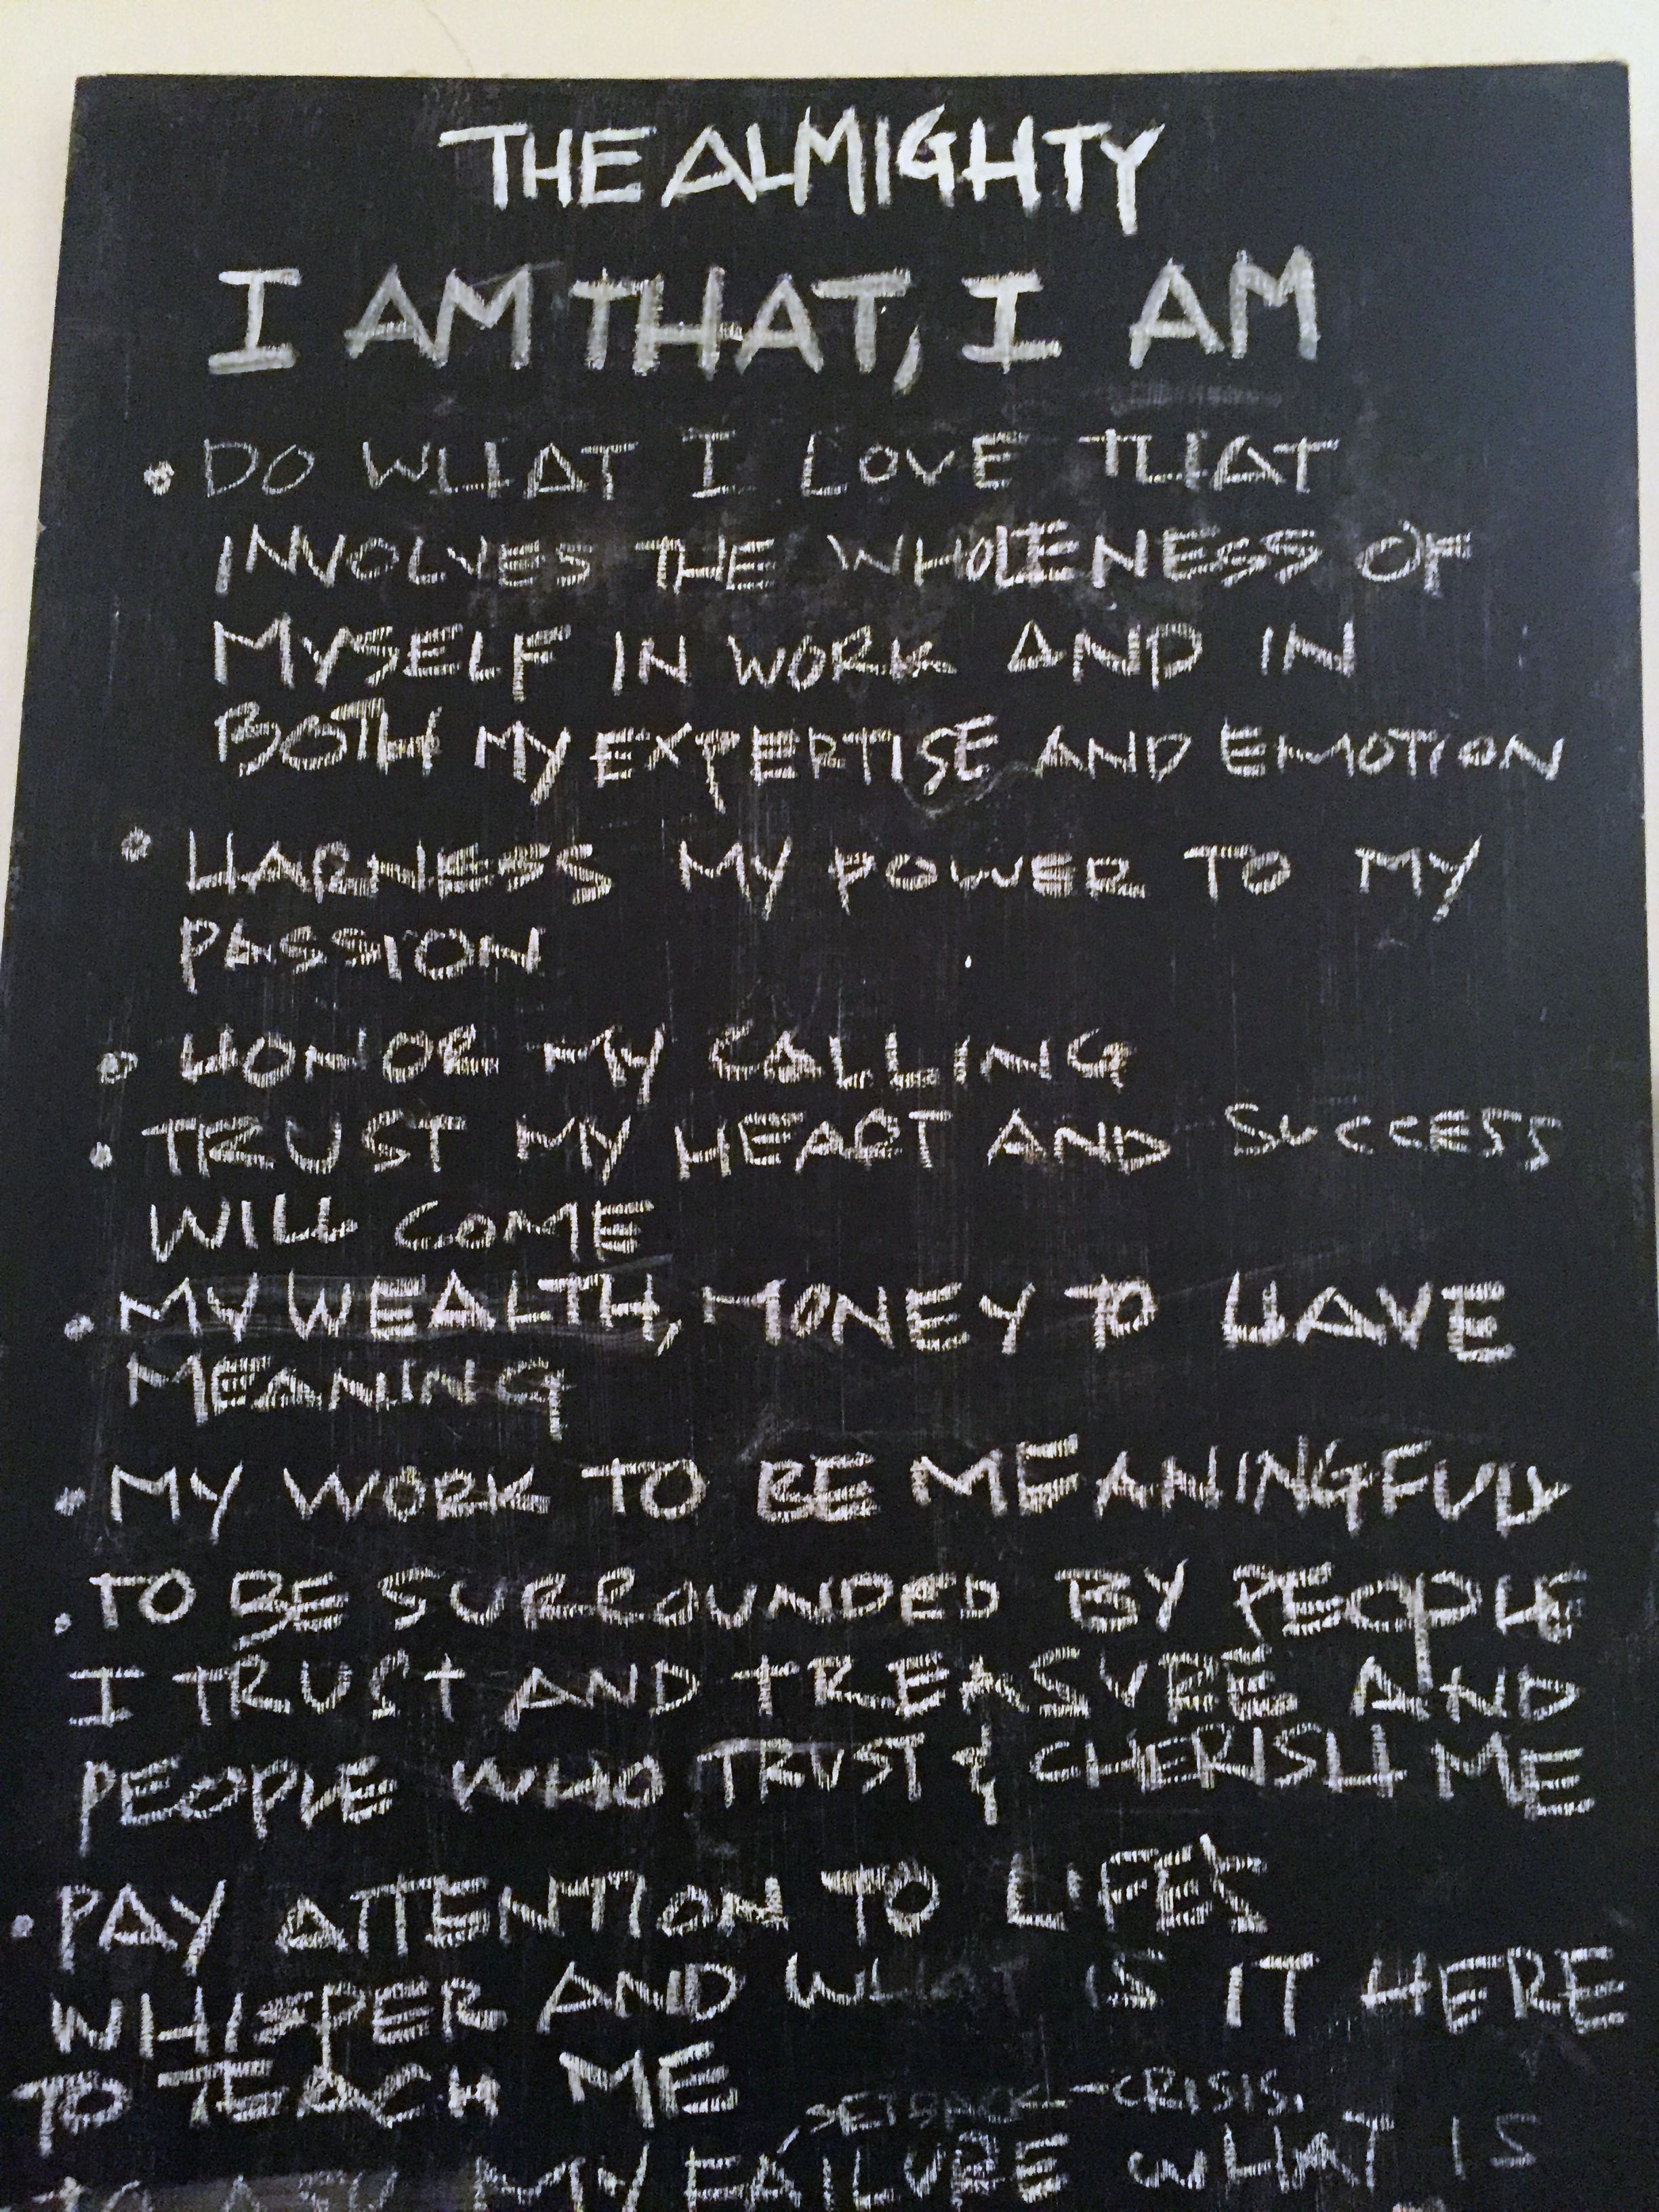 THE ALMIGHTY
I AM THAT, I AM
• DO WHAT I LOVE THAT
INVOLVES THE WHOLENESS OF
MYSELF IN WORK AND IN
BOTH MY EXPERTISE AND EMOTION
• HARNESS MY POWER TO MY
PASSION
• HONOR MY CALLING
• TRUST MY HEART AND SUCCESS
WILL COME
• MY WEALTH, MONEY TO HAVE
MEANING
• MY WORK TO BE MEANINGFUL
• TO BE SURROUNDED BY PEOPLE
I TRUST AND TREASURE AND
PEOPLE WHO TRUST & CHERISH ME
• PAY ATTENTION TO LIFE'S
WHISPER AND WHAT IS IT HERE
TO TEACH ME
SETBACK-CRISIS,
TO ASK MY FAILURE WHAT IS